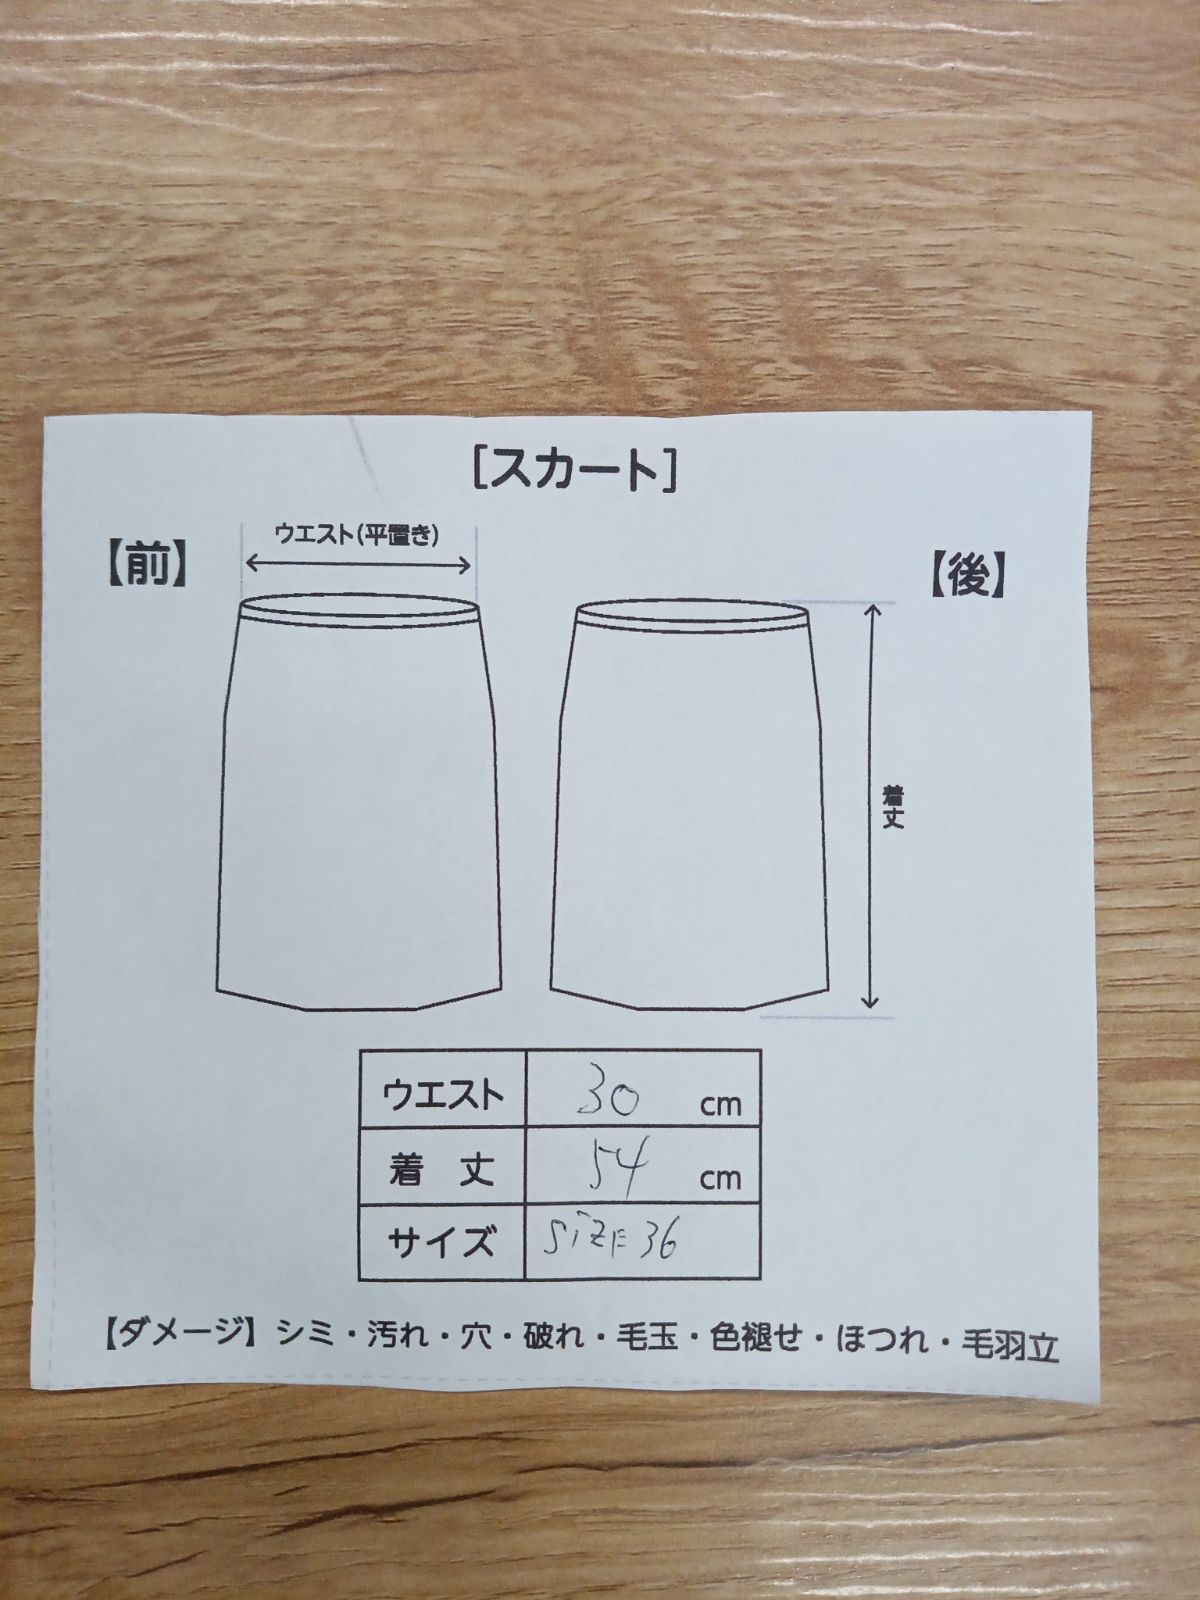 [スカート]
【前】
ウエスト(平置き)
【後】
着丈
ウエスト 30 cm
着 丈 54 cm
サイズ SIZE 36
【ダメージ】シミ・汚れ・穴・破れ・毛玉・色褪せ・ほつれ・毛羽立